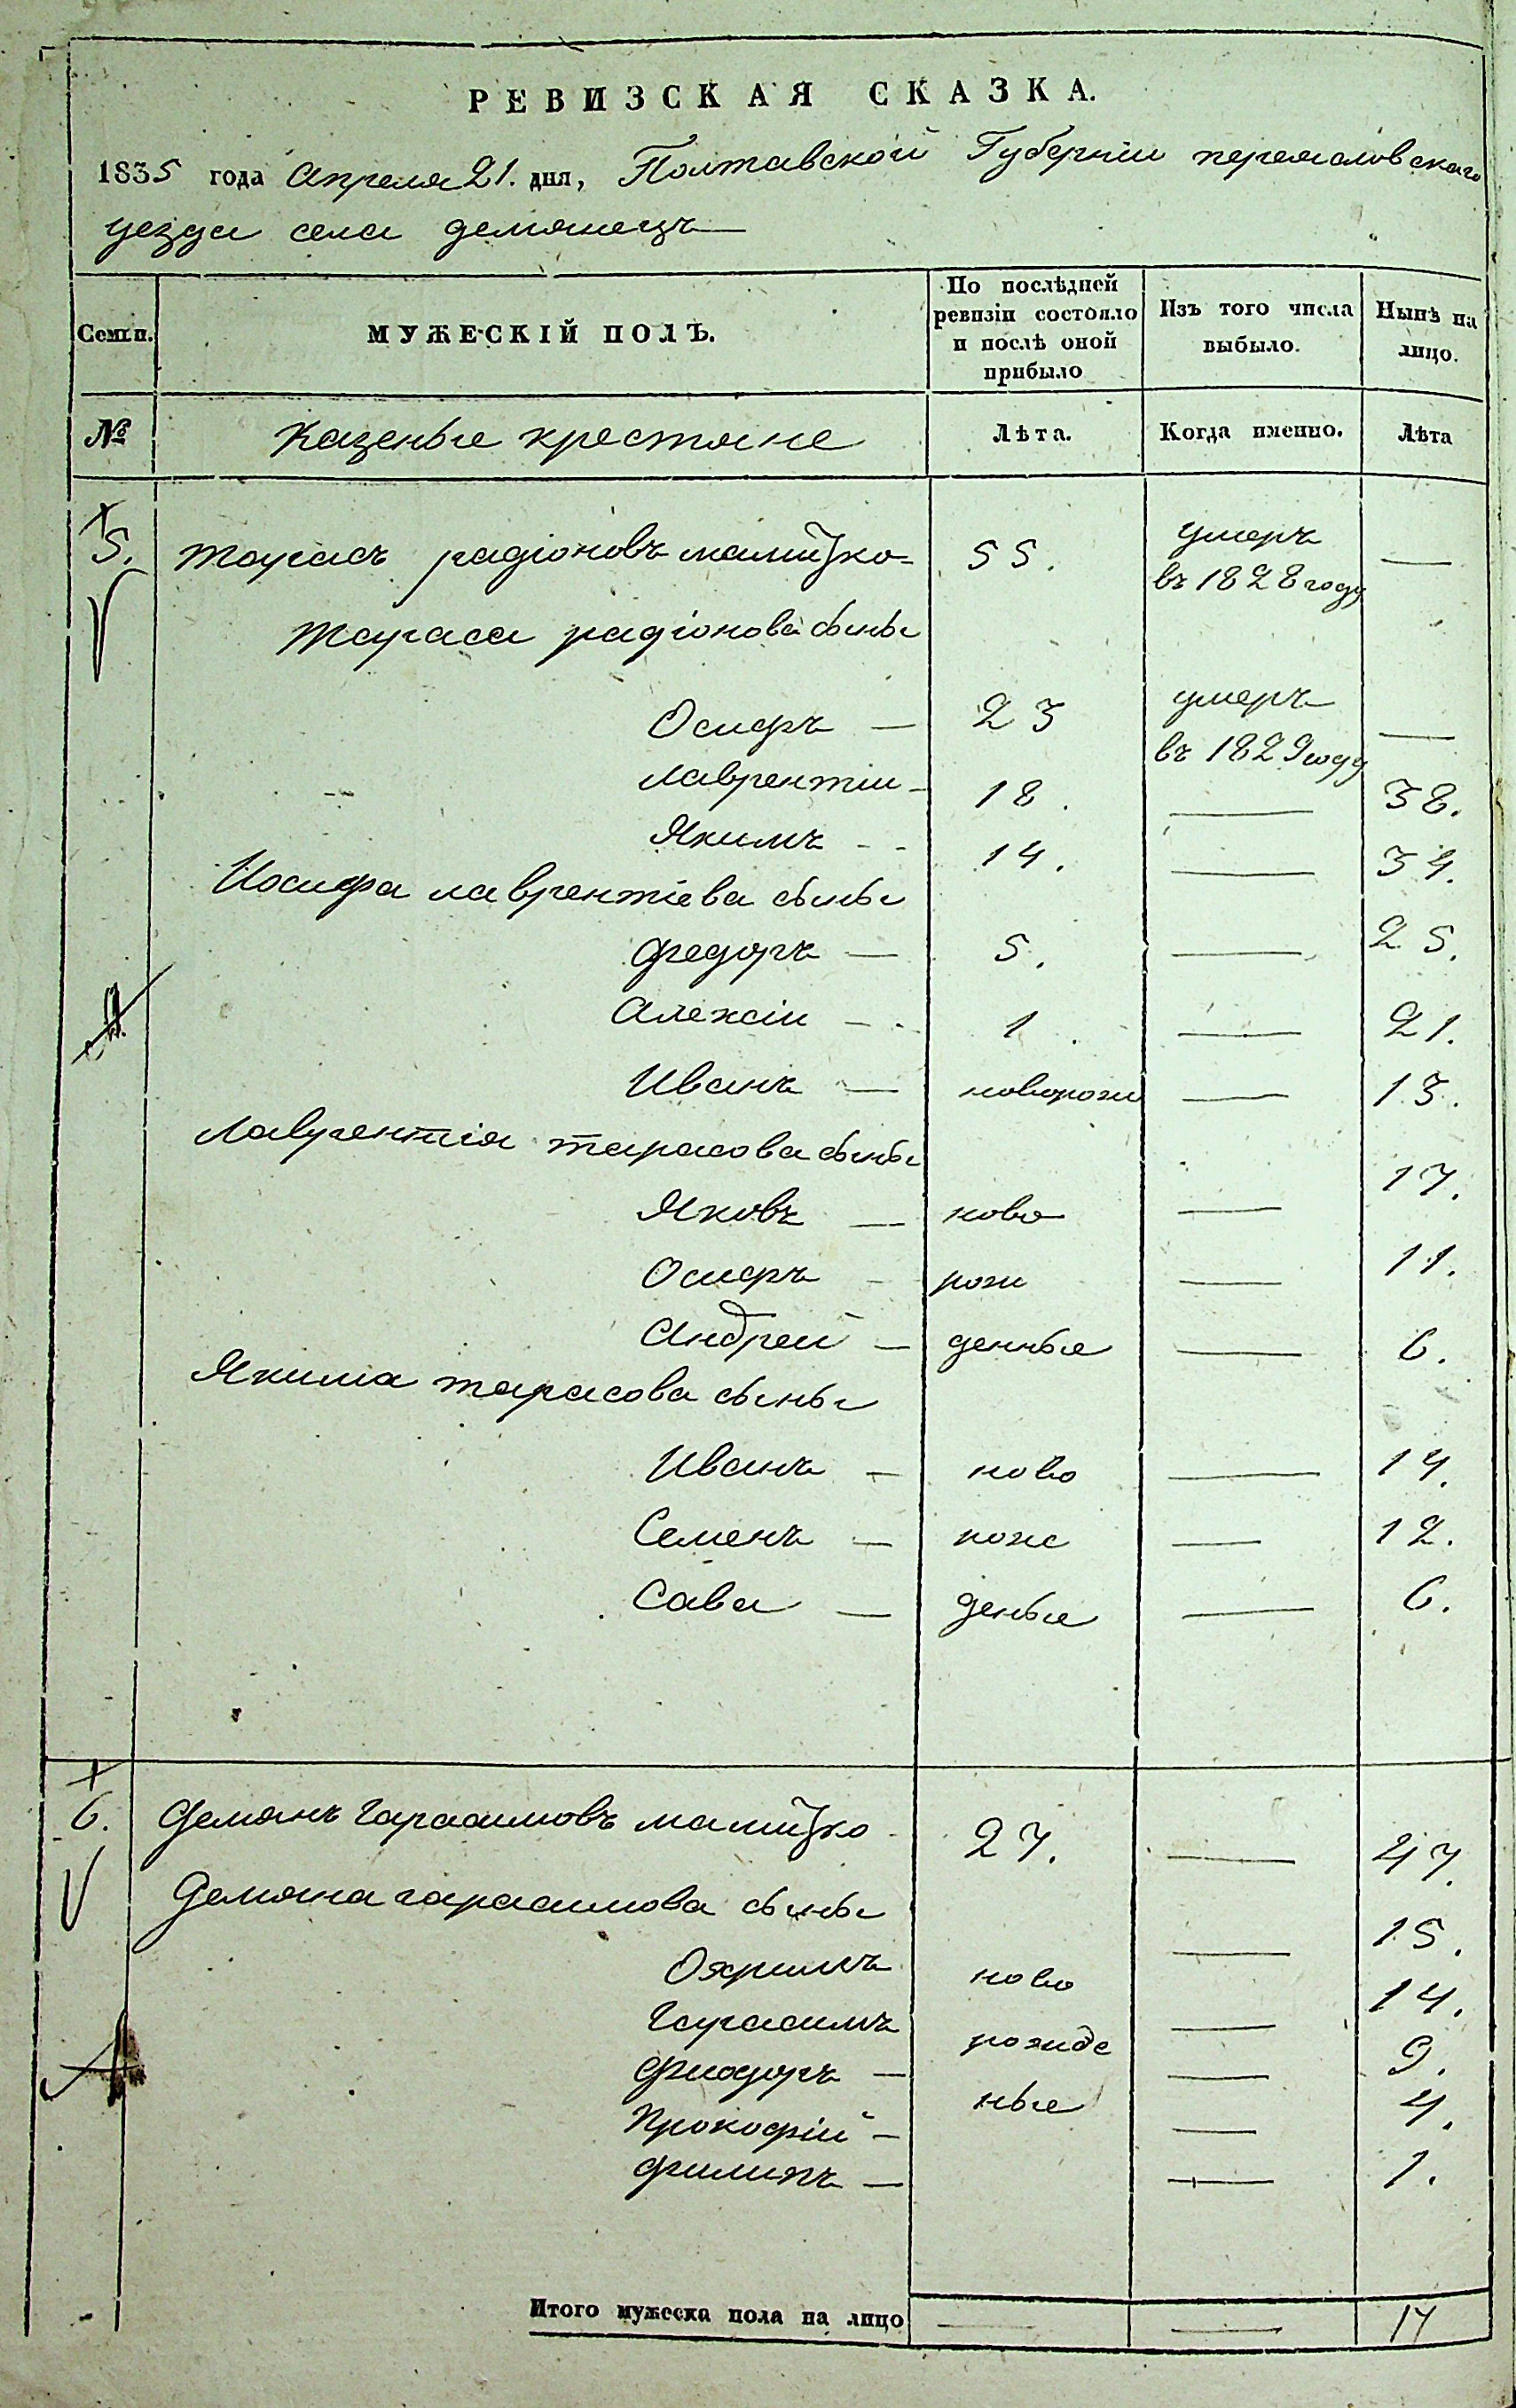 РЕВИЗСКАЯ СКАЗКА.
1835 года Апреля 21. дня, Полтавской Губерніи переясловскаго
уезда села демянецъ
Семьи. МУЖЕСКІЙ ПОЛЪ. По послѣдней ревизіи состояло и послѣ оной прибыло Изъ того числа выбыло. Нынѣ на лицо.
№ Казеные крестяне Лѣта. Когда именно. Лѣта
5. тарасъ радіоновъ 55. умеръ въ 1828 году —
тараса радіонова сыны
Осифъ — 23 умеръ въ 1829 году —
лаврентіи - 18. — 38.
Якимъ - - 14. — 34.
Иосифа лаврентіева сыны
федоръ — 5. — 25.
Алексіи - - 1. — 21.
Иванъ — новорож — 13.
лаврентія тарасова сыны
Яковъ — ново — 17.
Осифъ - рож — 11.
Андрей — денные — 6.
Якима тарасова сыны
Иванъ — ново — 14.
Семенъ — рож — 12.
Сава — деные — 6.
6. Демянъ гарасимовъ 27. — 47.
Демяна гарасимова сыны
Охримъ ново — 15.
Гарасимъ рожде — 14.
фиодоръ — ные — 9.
Прокофій — — 4.
филипъ — — 1.
Итого мужеска пола на лицо — — 17